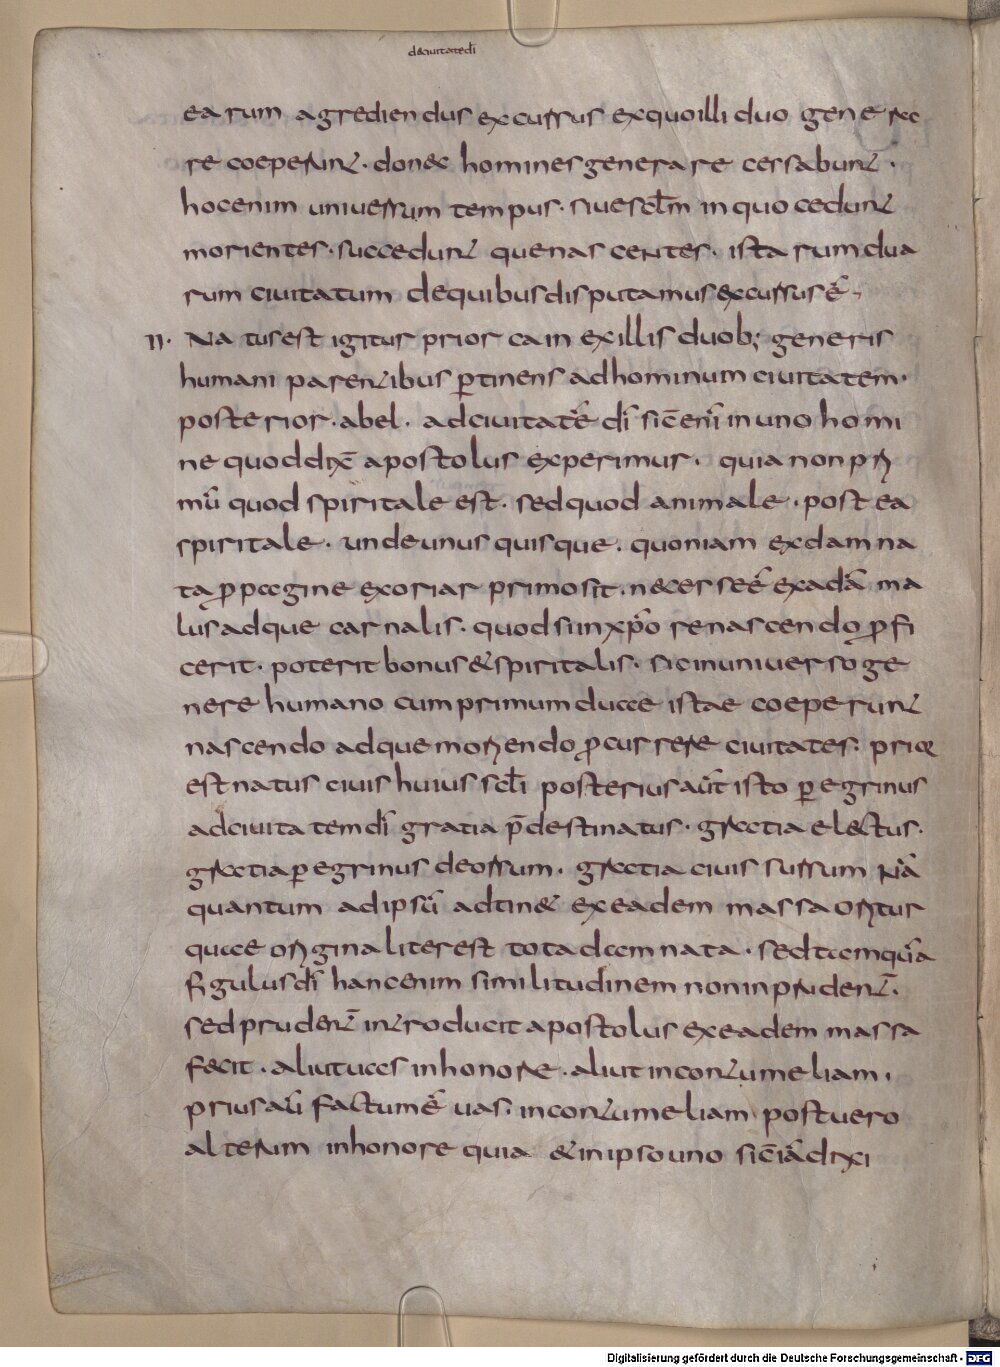 de ciuitate dī
earum agrediendus excursus exquo illi duo genera
re coeperunt · donec homines generare cessabunt ·
hoc enim uniuersum tempus · siue sclm̄ in quo cedunt
morientes · succedunt que nascentes · istarum dua
rum ciuitatum de quibus disputamus excursus ē̄ ·
II · Natus est igitur prior cain ex illis duob; generis
humani parentibus ꝑtinens ad hominum ciuitatem ·
posterior · abel · ad ciuitatē dī sic̄ enī in uno homi
ne quod dix̄ apostolus experimur · quia non pri
mū quod spiritale est · sed quod animale · post ea
spiritale · unde unus quisque · quoniam ex damna
ta ꝓpagine exoriar primo sit · necesse ē̄ ex adā ma
lus adque carnalis · quod si in xp̄o renascendo ꝓfi
cerit · poterit bonus & spiritalis · sic in uniuerso ge
nere humano cum primum duae istae coeperunt
nascendo adque moriendo ꝓcurrere ciuitates · prior
est natus ciuis huius scl̄i posterius aūt isto ꝑegrinus
ad ciuitatem dī gratia p̄destinatus · gratia electus ·
gratia ꝑegrinus deorsum · gratia ciuis sursum Nā
quantum ad ipsū adtin& ex eadem massa oritur
quae originaliter est tota damnata · sed tamquā
figulus dī hanc enim similitudinem non inprudent̄ ·
sed prudent̄ introducit apostolus ex eadem massa
fecit · aliut uas in honore · aliut in contumeliam ·
prius aū factum ē̄ uas · in contumeliam post uero
alterum in honore quia & in ipso uno sic̄ iā dixi
Digitalisierung gefördert durch die Deutsche Forschungsgemeinschaft - DFG